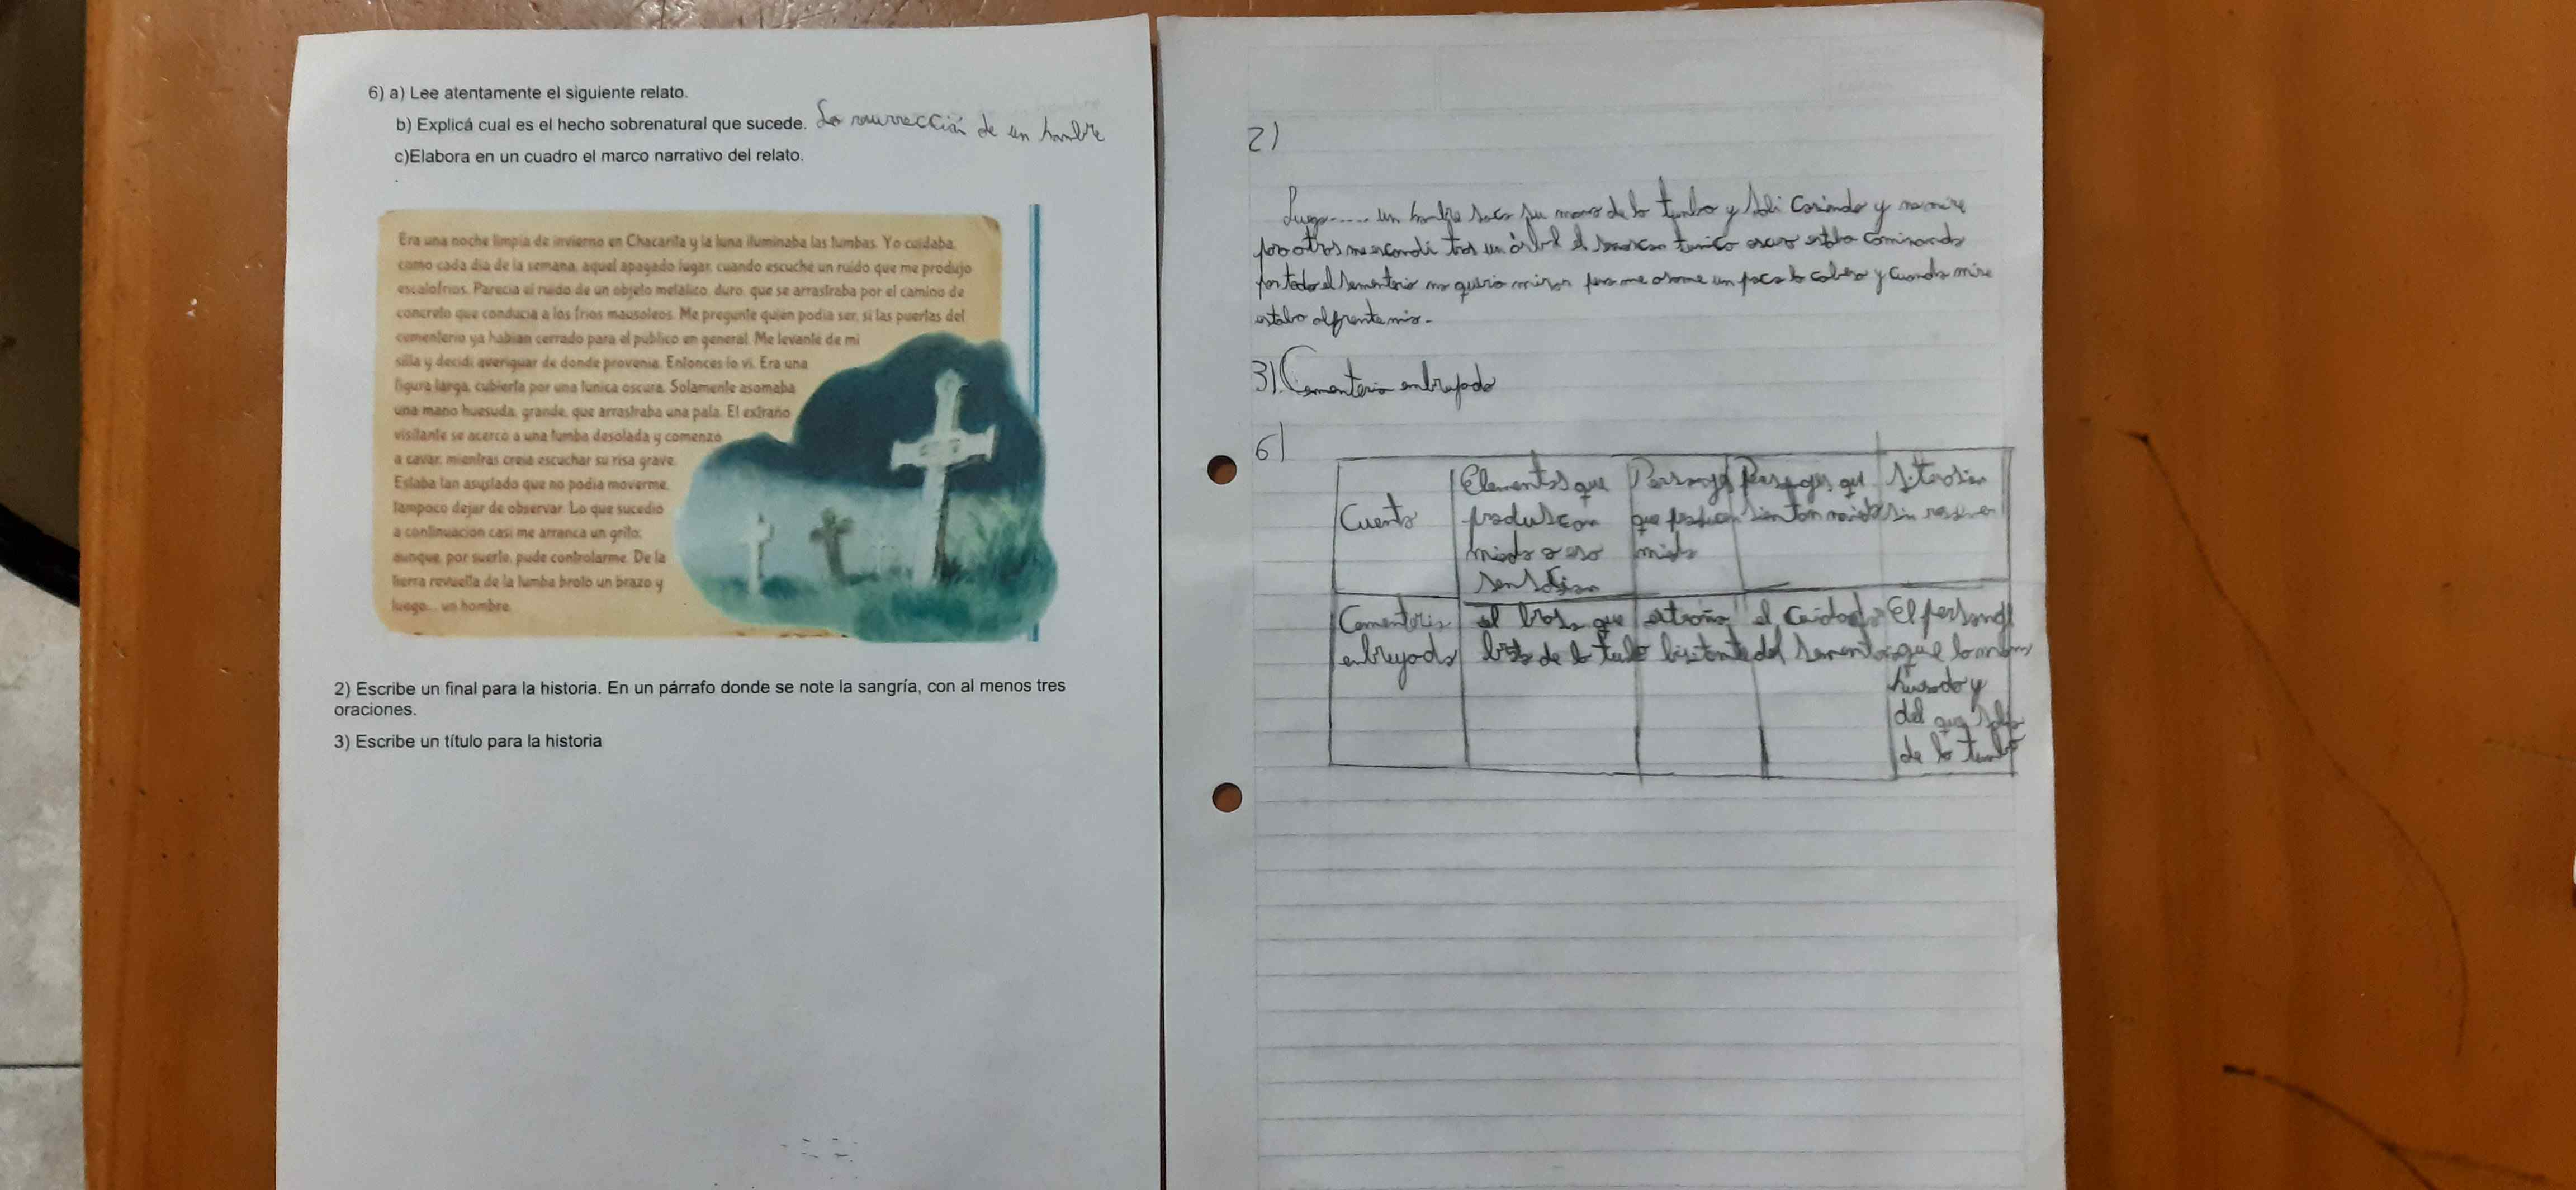 6) a) Lee atentamente el siguiente relato.
b) Explicá cual es el hecho sobrenatural que sucede. La resurrección de un hombre
c)Elabora en un cuadro el marco narrativo del relato.
Era una noche limpia de invierno en Chacarita y la luna iluminaba las tumbas. Yo cuidaba,
como cada día de la semana, aquel apagado lugar, cuando escuché un ruido que me produjo
escalofríos. Parecía el ruido de un objeto metálico, duro, que se arrastraba por el camino de
concreto que conducía a los fríos mausoleos. Me pregunté quien podía ser, si las puertas del
cementerio ya habían cerrado para el público en general. Me levanté de mi
silla y decidí averiguar de donde provenía. Entonces lo vi. Era una
figura larga, cubierta por una túnica oscura. Solamente asomaba
una mano huesuda, grande, que arrastraba una pala. El extraño
visitante se acercó a una tumba desolada y comenzó
a cavar, mientras creía escuchar su risa grave.
Estaba tan asustado que no podía moverme,
tampoco dejar de observar. Lo que sucedió
a continuación casi me arranca un grito;
aunque, por suerte, pude controlarme. De la
tierra revuelta de la tumba brotó un brazo y
luego... un hombre.
2) Escribe un final para la historia. En un párrafo donde se note la sangría, con al menos tres
oraciones.
3) Escribe un título para la historia
2)
Luego..... un hombre saco su mano de la tumba y sali coriendo y no mire
para atras me escondi tras un árbol el señor con tunica oscura estaba caminando
por todo el sementerio no queria mirar pero me asome un poco la cabeza y cuando mire
estaba alfrente mio.
3) Cementerio embrujado
6)
Cuento
Elementos que
produscan
miedo o eso
Personajes
que producen
miedo
Personajes que
sientan miedo
situasion
sin resolver
Cementerio
embrujado
el braso que
broto de la
estraño
bisitante
el cuidador
del sementerio
El personaje
que la mano
huesuda y
del que salio
de la tumba